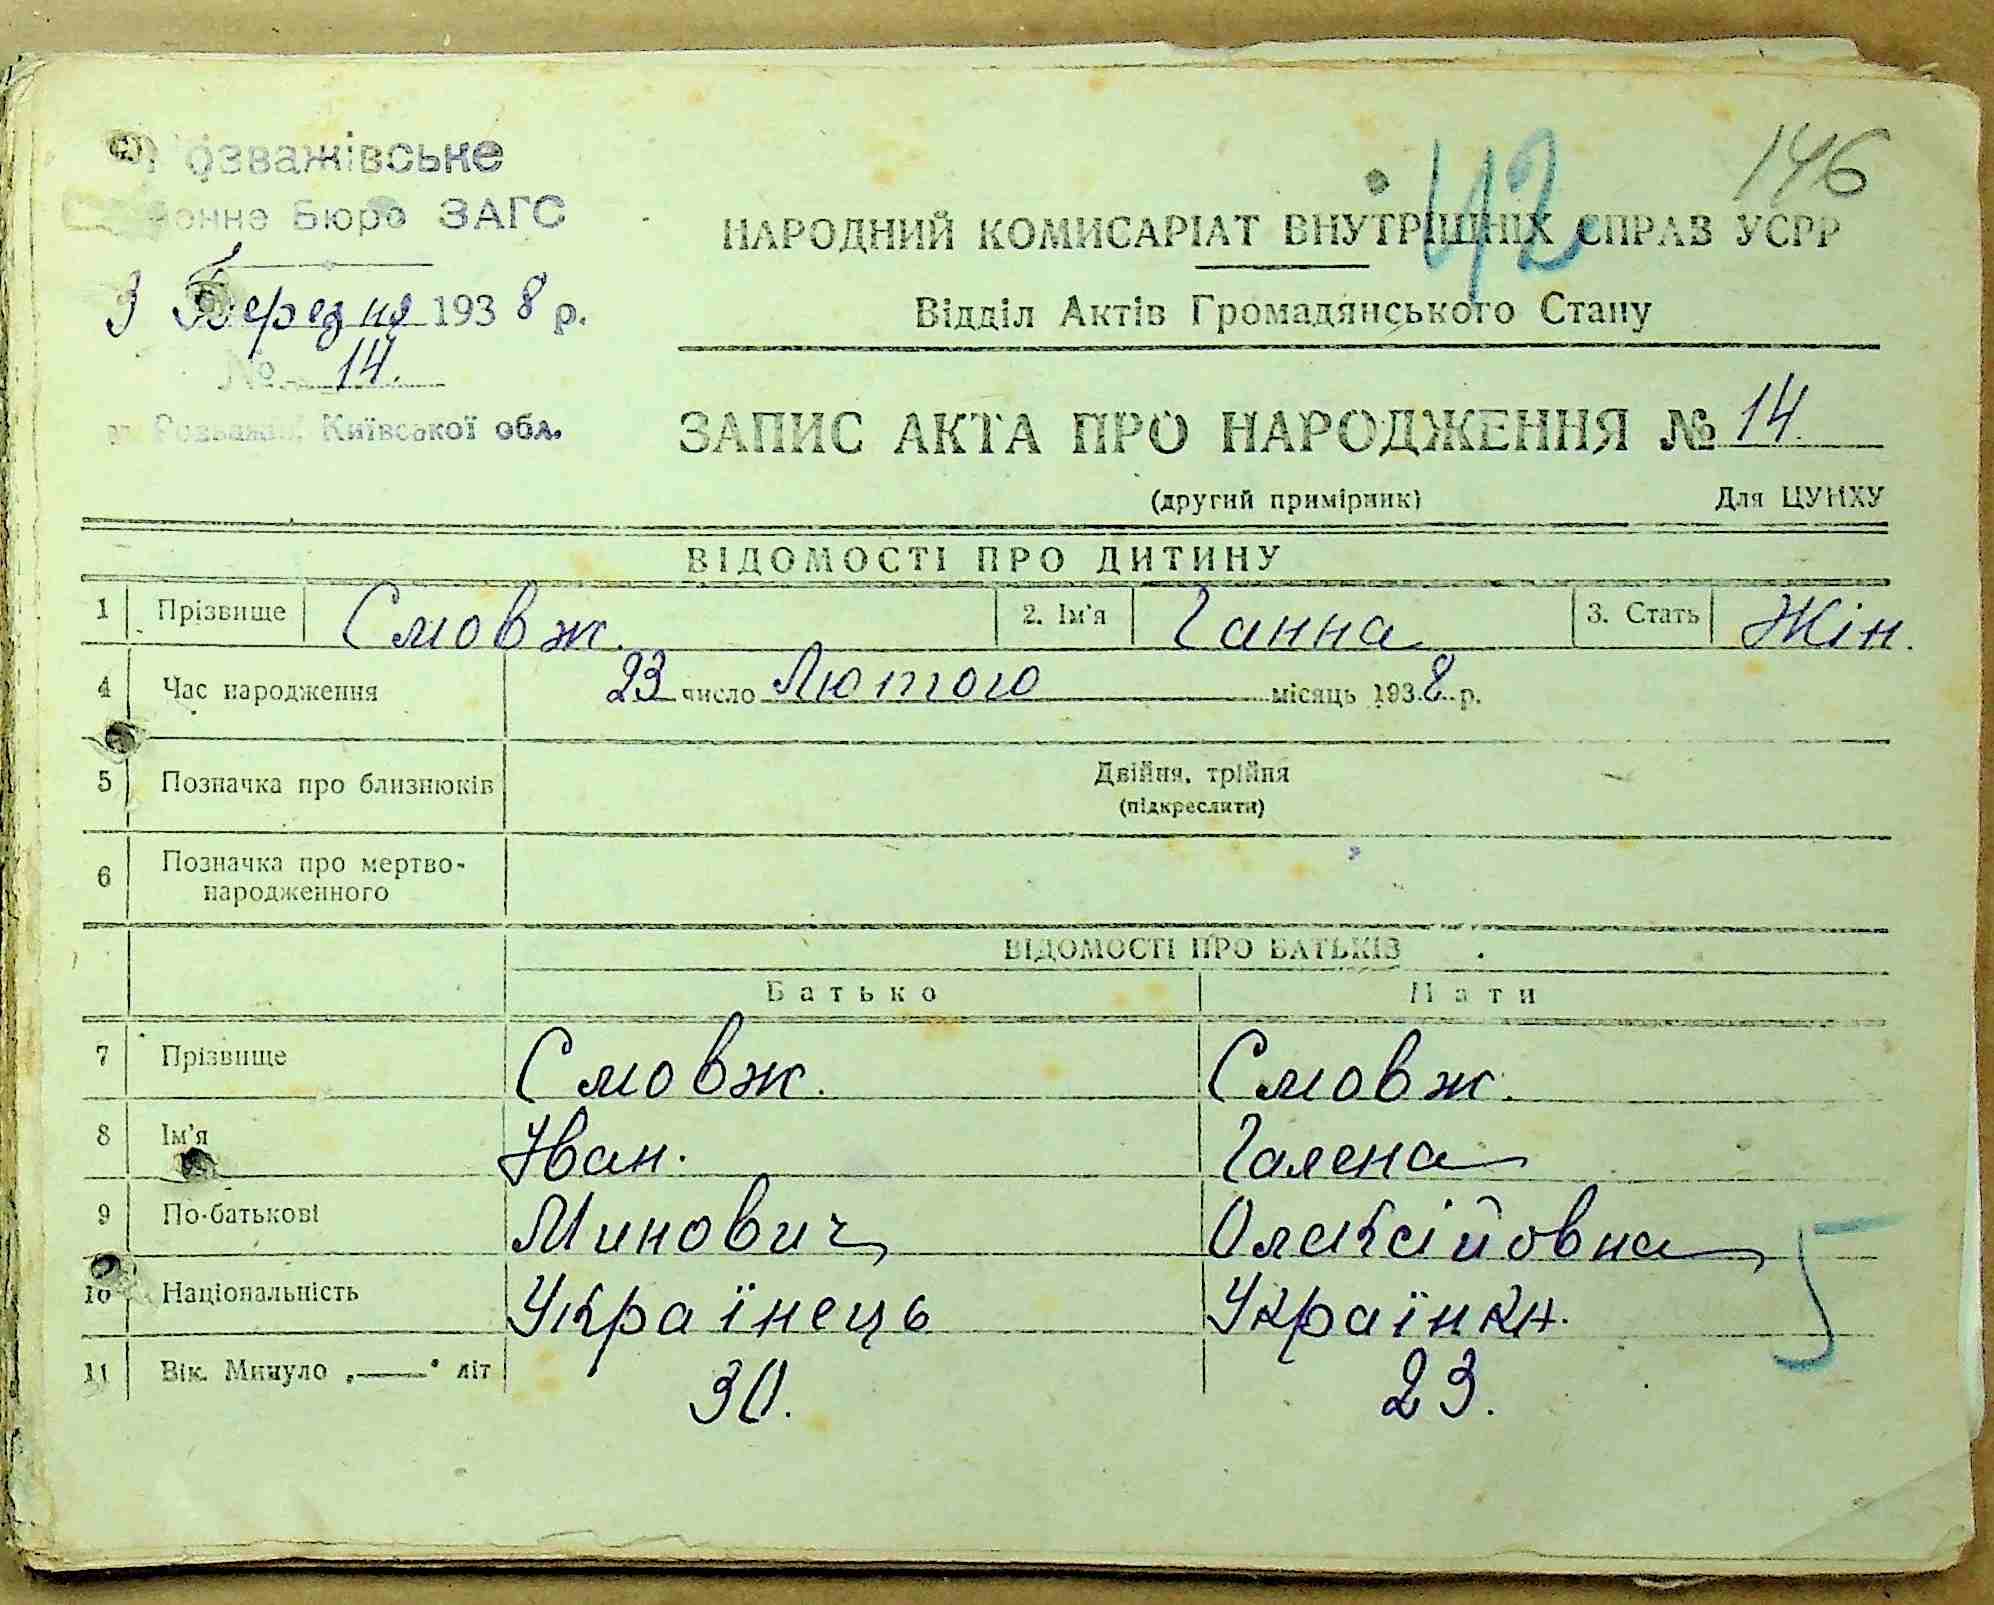 Розважівське
Бюро ЗАГС
3 Березня 1938 р.
№ 14.
Київської обл.
42
146
НАРОДНИЙ КОМИСАРІАТ ВНУТРІШНІХ СПРАВ УСРР
Відділ Актів Громадянського Стану
ЗАПИС АКТА ПРО НАРОДЖЕННЯ № 14.
(другий примірник) Для ЦУНХУ
ВІДОМОСТІ ПРО ДИТИНУ
1 Прізвище Смовж. 2. Ім'я Ганна 3. Стать Жін.
4 Час народження 23 число Лютого місяць 1938 р.
5 Позначка про близнюків Двійня, трійня
(підкреслити)
6 Позначка про мертво-
народженного
ВІДОМОСТІ ПРО БАТЬКІВ
Батько Мати
7 Прізвище Смовж. Смовж.
8 Ім'я Іван. Галена
9 По-батькові Минович Олексійовна
10 Національність Українець Українка.
5
11 Вік. Минуло „——“ літ 30. 23.